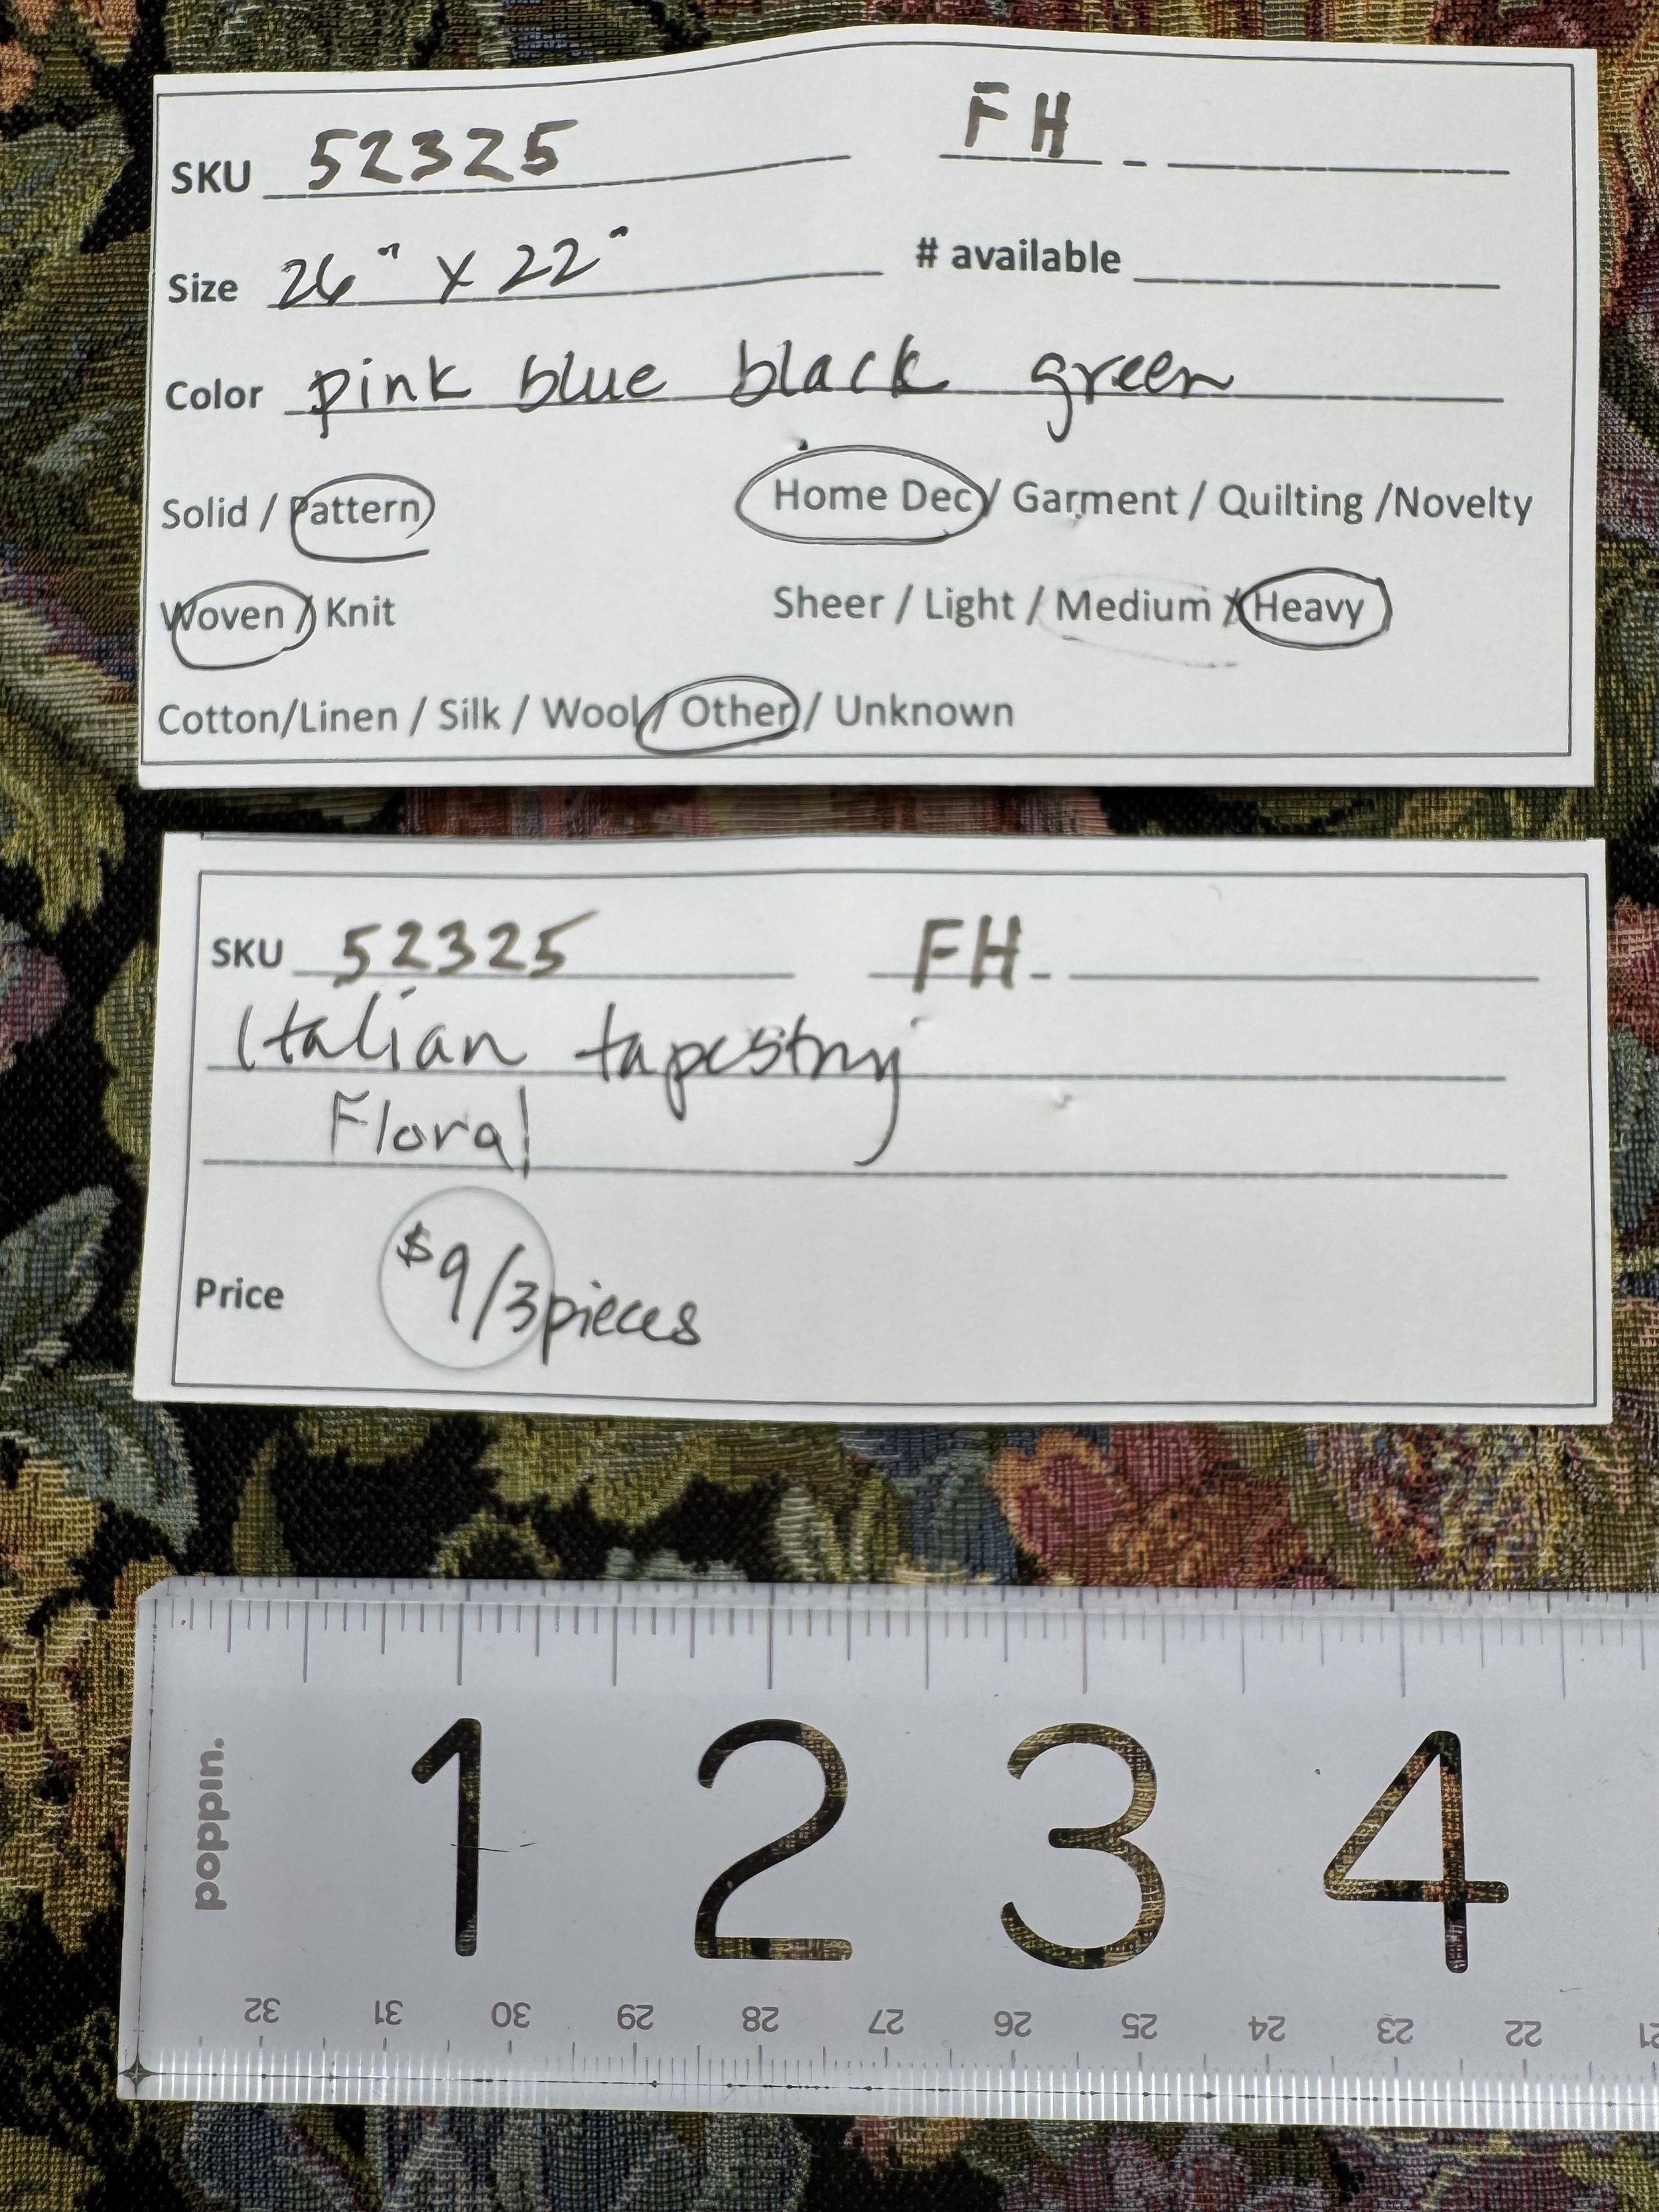 SKU 52325 FH -
Size 26" x 22" # available
Color pink blue black green
Solid / Pattern Home Dec / Garment / Quilting /Novelty
Woven / Knit Sheer / Light / Medium / Heavy
Cotton/Linen / Silk / Wool / Other / Unknown
SKU 52325 FH -
Italian tapestry
Floral
Price $9/3pieces
poppin.
1 2 3 4
32 31 30 29 28 27 26 25 24 23 22 21